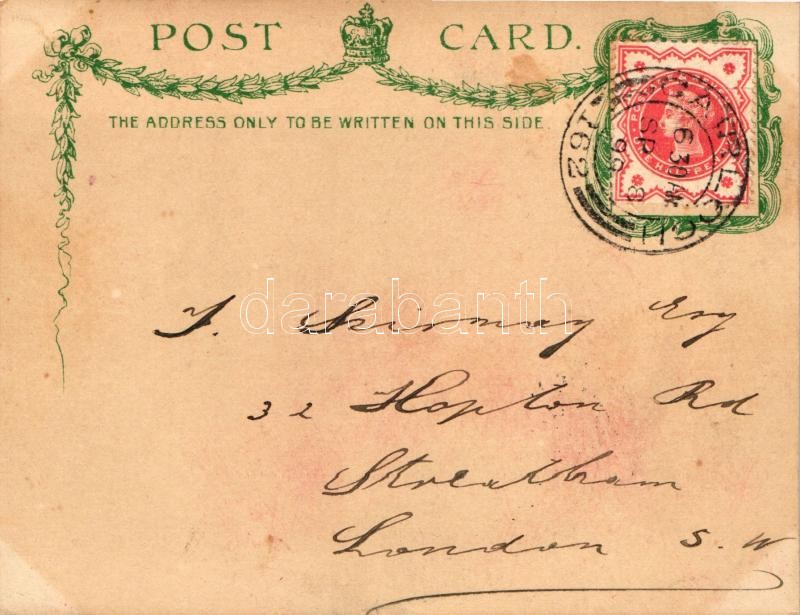 POST CARD.
THE ADDRESS ONLY TO BE WRITTEN ON THIS SIDE.
6 30 AM
SP 8
99
162
darabanth
32 Hopton Rd
Streatham
London S. W